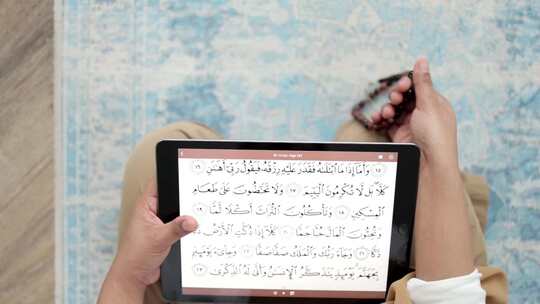 ١٥ وَأَمَّآ إِذَا مَا ٱبْتَلَىٰهُ فَقَدَرَ عَلَيْهِ رِزْقَهُۥ فَيَقُولُ رَبِّىٓ أَهَٰنَنِ ١٦
كَلَّا ۖ بَل لَّا تُكْرِمُونَ ٱلْيَتِيمَ ١٧ وَلَا تَحَٰٓضُّونَ عَلَىٰ طَعَامِ
ٱلْمِسْكِينِ ١٨ وَتَأْكُلُونَ ٱلتُّرَاثَ أَكْلًا لَّمًّا ١٩
وَتُحِبُّونَ ٱلْمَالَ حُبًّا جَمًّا ٢٠ كَلَّآ إِذَا دُكَّتِ ٱلْأَرْضُ دَكًّا
دَكًّا ٢١ وَجَآءَ رَبُّكَ وَٱلْمَلَكُ صَفًّا صَفًّا ٢٢ وَجِا۟ىٓءَ يَوْمَئِذٍۭ
بِجَهَنَّمَ ۚ يَوْمَئِذٍ يَتَذَكَّرُ ٱلْإِنسَٰنُ وَأَنَّىٰ لَهُ ٱلذِّكْرَىٰ ٢٣